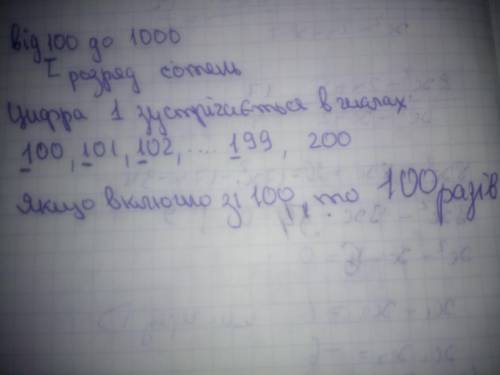 від 100 до 1000
I розряд сотень
Цифра 1 зустрічається в числах
100, 101, 102, ... 199, 200
Якщо включно зі 100, то 100 разів